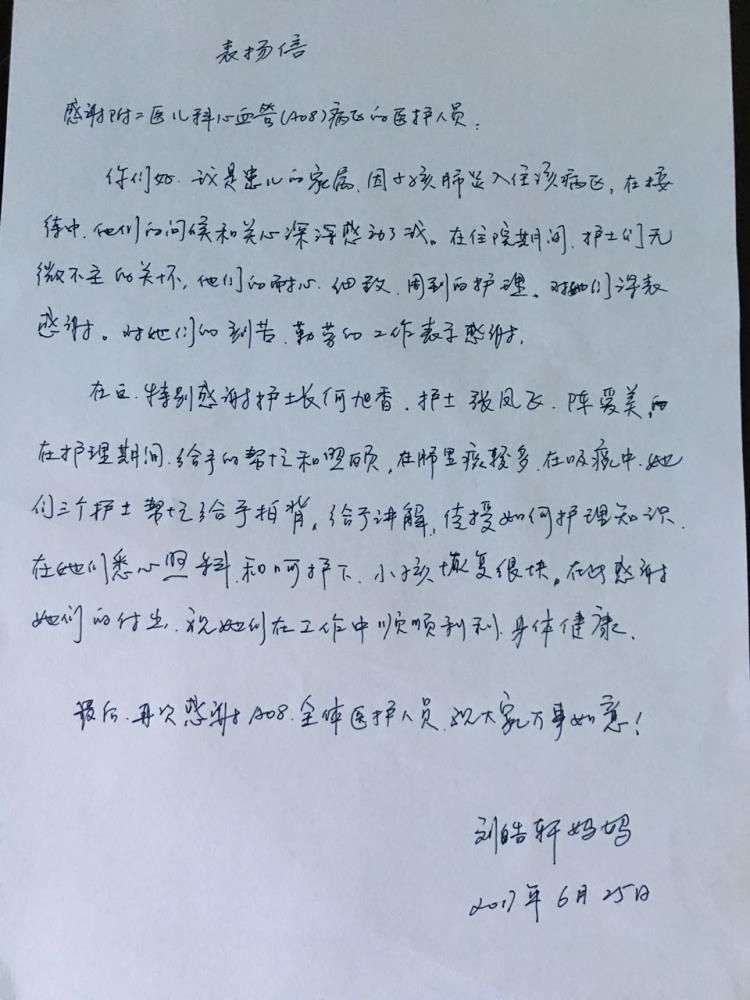 表扬信
感谢附二医儿科心血管(A08)病区的医护人员:
你们好.我是患儿的家属,因小孩肺炎入住该病区,在接
待中.他们的问候和关心深深感动了我。在住院期间.护士们无
微不至的关怀,他们的耐心.细致.周到的护理。对她们深表
感谢。对她们的刻苦.勤劳的工作表示感谢.
在这.特别感谢护士长何旭香.护士张凤飞.陈爱美,
在护理期间.给予的帮忙和照顾,在肺里痰较多.在吸痰中.她
们三个护士帮忙给予拍背,给予讲解,传授如何护理知识.
在她们悉心照料和呵护下.小孩恢复很快。在此感谢
她们的付出.祝她们在工作中顺顺利利.身体健康.
最后.再次感谢A08.全体医护人员.祝大家万事如意!
刘皓轩妈妈
2017年6月25日